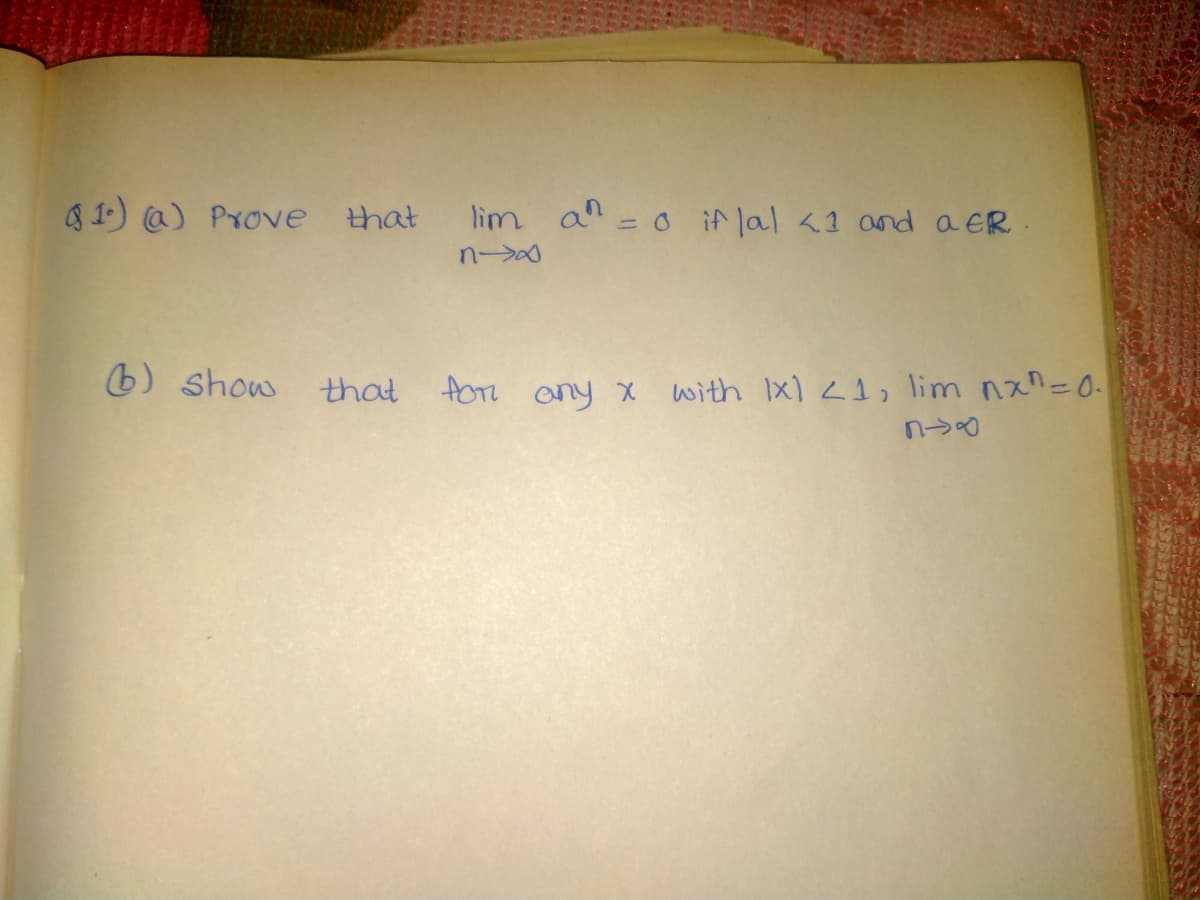 Q 1.) (a) Prove that lim aⁿ = 0 if |a| <1 and a ∈R.
n→∞
(b) Show that for any x with |x| <1, lim nxⁿ=0.
n→∞